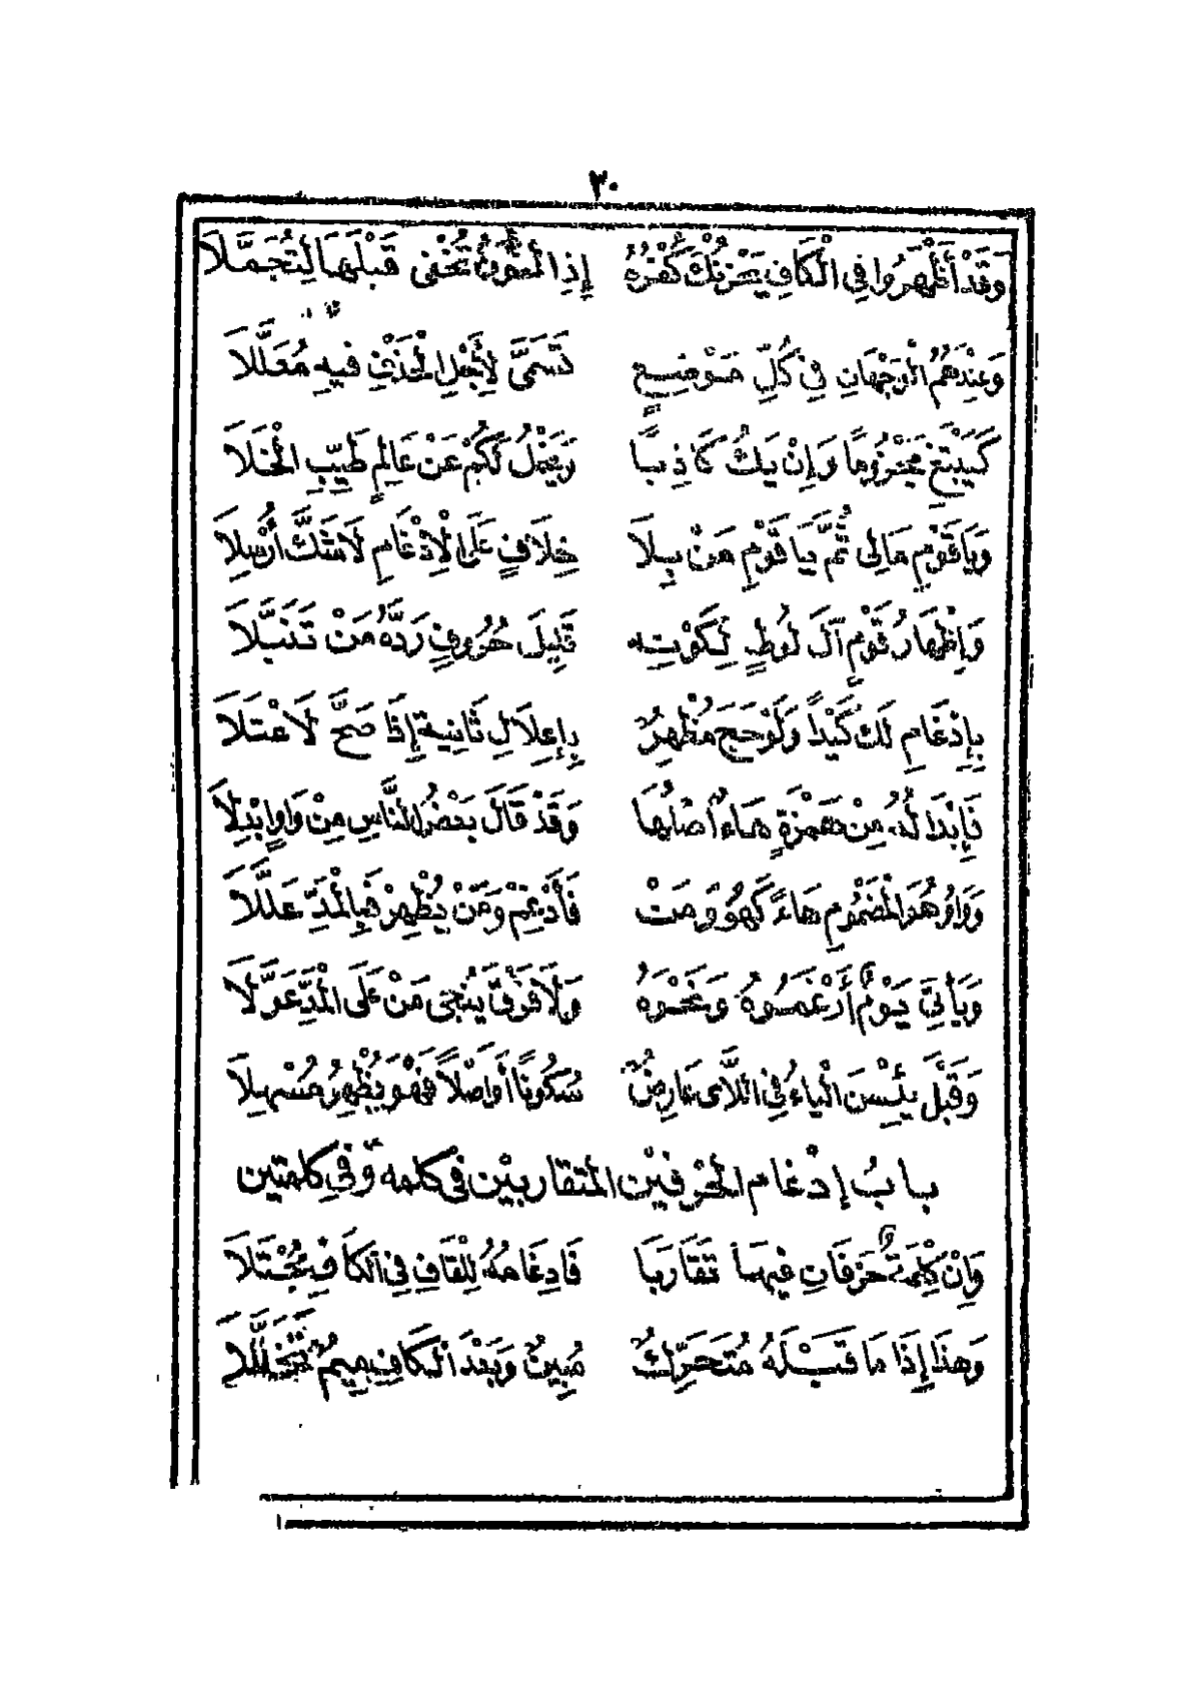 ٣٠
وَقَدْ أَظْهَرُوا فِي الْكَافِ يَحْزُنْكَ كُفْرُهُ إِذِ النُّونُ تُخْفَى قَبْلَهَا لِتُجَمَّلَا
وَعِنْدَهُمُ الْوَجْهَانِ فِي كُلِّ مَوْضِعٍ تَسَمَّى لِأَجْلِ الْحَذْفِ فِيهِ مُعَلَّلَا
كَيَبْتَغِ مَجْزُومًا وَإِنْ يَكُ كَاذِبًا وَيَخْلُ لَكُمْ عَنْ عَالِمٍ طَيِّبِ الْخَلَا
وَيَا قَوْمِ مَالِي ثُمَّ يَا قَوْمِ مَنْ بِلَا خِلَافٍ عَلَى الْإِدْغَامِ لَا شَكَّ أُرْسِلَا
وَإِظْهَارُ قَوْمٍ آلَ لُوطٍ لِكَوْنِهِ قَلِيلَ حُرُوفٍ رَدَّهُ مَنْ تَنَبَّلَا
بِإِدْغَامِ لَكَ كَيْدًا وَلَوْ حَجَّ مُظْهِرٌ بِإِعْلَالِ ثَانِيهِ إِذَا صَحَّ لَاعْتَلَا
فَإِبْدَالُهُ مِنْ هَمْزَةٍ هَاءٌ أَصْلُهَا وَقَدْ قَالَ بَعْضُ النَّاسِ مِنْ وَاوٍ ابْدِلَا
وَوَاوُ هُوَ الْمَضْمُومِ هَاءً كَهُوَ وَمَنْ فَأَدْغِمْ وَمَنْ يُظْهِرْ فَبِالْمَدِّ عَلَّلَا
وَيَأْتِيَ يَوْمٌ أَدْغَمُوهُ وَنَحْوَهُ وَلَا فَرْقَ يُنْجِي مَنْ عَلَى الْمَدِّ عَوَّلَا
وَقَبْلَ يَئِسْنَ الْيَاءُ فِي اللَّاءِ عَارِضٌ سُكُونًا أَوَ اصْلًا فَهْوَ يُظْهِرُ مُسْهِلَا
بابُ إدْغام الحرْفيْن المتقاربيْن في كلمة وفي كلمتين
وَإِنْ كِلْمَةٌ حَرْفَانِ فِيهَا تَقَارَبَا فَإِدْغَامُهُ لِلْقَافِ فِي الْكَافِ مُجْتَلَا
وَهَذَا إِذَا مَا قَبْلَهُ مُتَحَرِّكٌ مُبِينٌ وَبَعْدَ الْكَافِ مِيمٌ تَخَلَّلَا